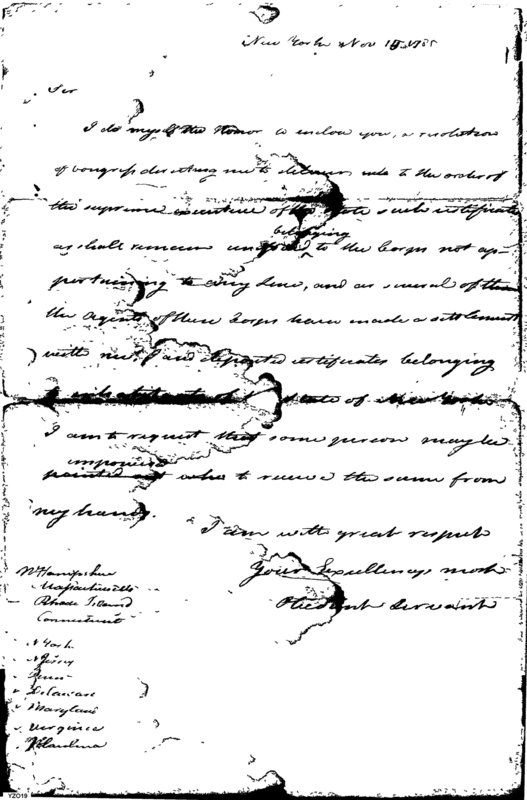 New York Nov 15 1785
Sir
I do myself the Honor to enclose you, a resolution
of Congress directing me to deliver unto the order of
the supreme executive of the State such certificates
belonging
as shall remain to the Corps not ap-
pertaining to any Line, and as several of them
the Agents of these Corps have made a settlement
with me, and deposited certificates belonging
to inhabitants of State of New York
I am to request that some person may be
impowered
pointed out who to receive the same from
my hands.
I am with great respect
Your Excellencys most
Obedient Servant
N Hampshire
Massachusetts
Rhode Island
Connecticut
N York
N Jersey
Penn
Delaware
Maryland
Virginia